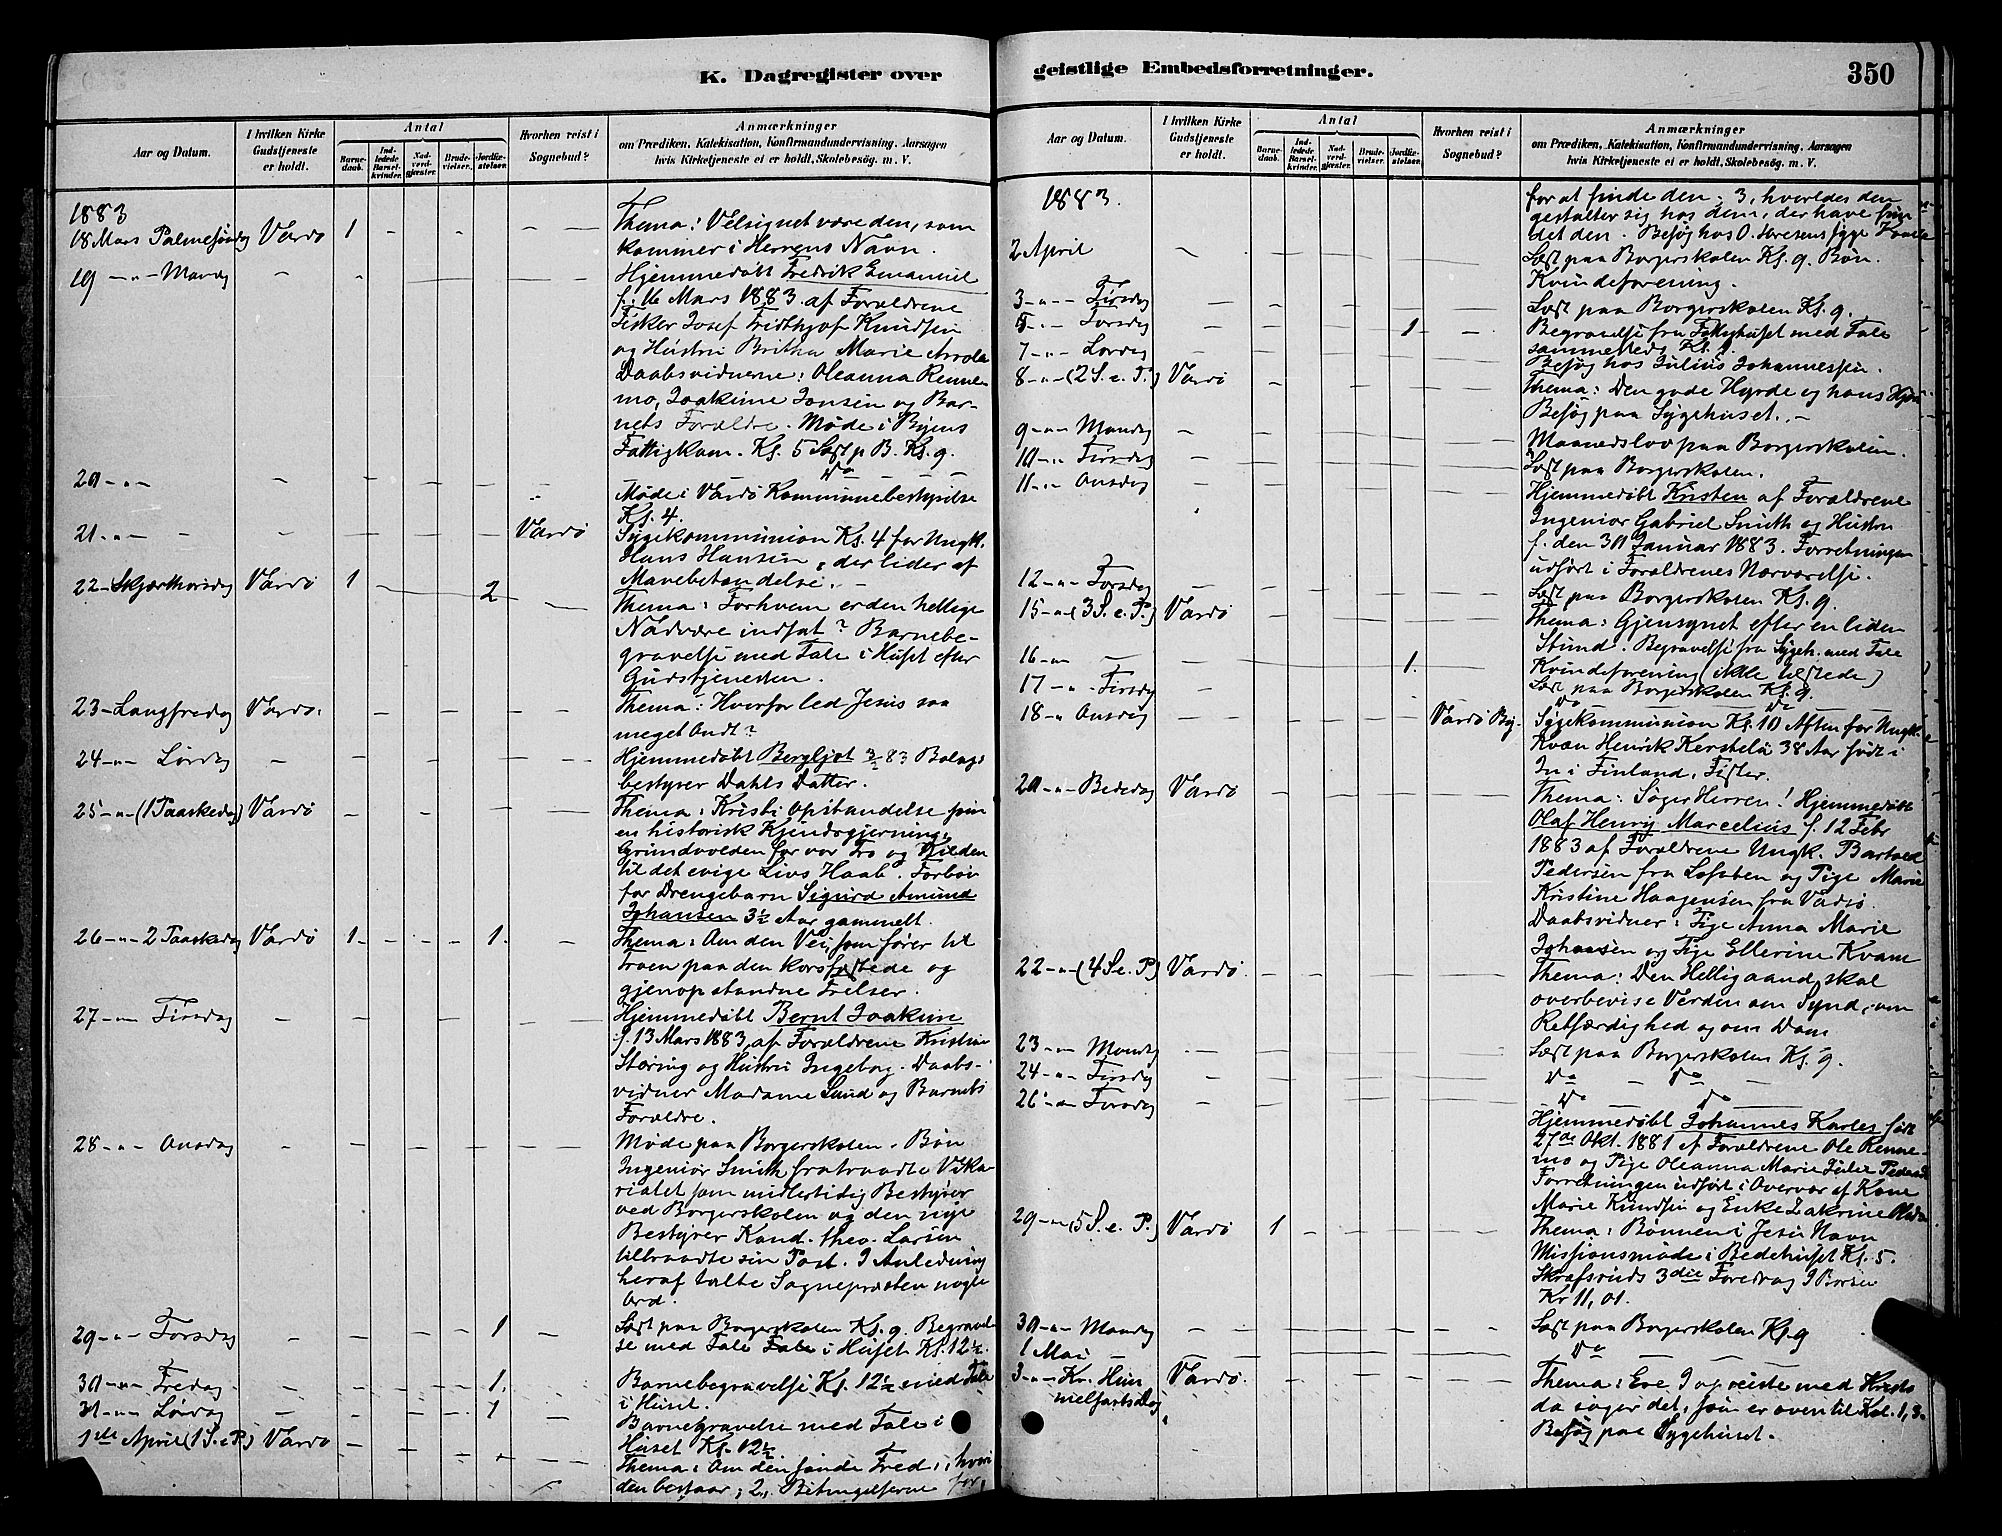 K. Dagregister over
geistlige Embedsforretninger.
350
Aar og Datum.
I hvilken Kirke Gudstjeneste er holdt.
Antal
Barnedaab.
Indledede Barselkvinder.
Nadverdgjæster.
Brudevielser.
Jordfæstelser.
Hvorhen reist i Sognebud?
Anmærkninger
om Prædiken, Katekisation, Konfirmandundervisning, Aarsagen
hvis Kirketjeneste ei er holdt, Skolebesøg. m. V.
1883
18 Mars Palmesøndag Vardø 1 Thema: Velsignet være den, som
kommer i Herrens Navn.
19 -"- Mandag Hjemmedøbt Fredrik Emanuel
f. 16 Mars 1883. af Forældrene
Fisker Josef Fridthjof Knudsen
og Hustru Britha Marie
Daabsvidnerne: Oleanna Renne-
mo, Joakime Jonsen og Bar-
nets Forældre. Møde i Byens
Fattigkom. Kl. 5 Læst p B. Kl. 9.
20 -"- Do
Møde i Vardø Kommunebestyrelse
Kl. 4.
21 -"- Vardø Sygekommunion Kl. 4 for Ungk.
Hans Hansen, der lider af
Mavebetændelse.
22 - Skjærthorsdag Vardø 1 2 Thema: Forhvem er den hellige
Nadvere indsat? Barnebe-
gravelse med Tale i Huset efter
Gudstjenesten.
23 - Langfredag Vardø. Thema: Hvorfor led Jesus saa
meget Ondt?
24 -"- Lørdag Hjemmedøbt Bergljot 3/2 83 Bolags
bestyrer Dahls Datter.
25 -"- (1 Paaskedag) Vardø Thema: Kristi Opstandelse som
en historisk Kjendsgjerning,
Grundvolden for vor Tro og Kilden
til det evige Livs Haab. Forbøn
for Drengebarn Sigurd Amund
Johansen 3½ Aar gammelt.
26 -"- 2 Paaskedag Vardø 1 1 Thema: Om den Vei, som fører til
Troen paa den korsfæstede og
gjenopstandne Frelser.
27 -"- Tirsdag Hjemmedøbt Bernt Joakim
f. 13 Mars 1883, af Forældrene Kristian
Støring og Hustru Ingeborg. Daabs-
vidner Madame Lund og Barnets
Forældre.
28 -"- Onsdag Møde paa Borgerskolen. Bøn
Ingeniør Smith fratraadte Vika-
riatet som midlertidig Bestyrer
ved Borgerskolen og den nye
Bestyrer Kand. theo. Larsen
tiltraadte sin Post. I Anledning
heraf talte Sognepræsten nogle
Ord.
29 -"- Torsdag 1 Læst paa Borgerskolen Kl. 9. Begravel
se med Tale i Huset Kl. 12½.
30 -"- Fredag 1 Barnebegravelse Kl. 12½ med Tale
i Huset.
31 -"- Lørdag 1 Barnebegravelse med Tale i
Huset Kl. 12½
1ste April (1 S.e.P) Vardø Thema: Om den sande Fred, 1, hvori
den bestaar; 2, Betingelserne for,
1883.
for at finde den; 3, hvorledes den
gestalter sig hos dem, der have fun
det den. Besøg hos O. syge Kone
2 April Læst paa Borgerskolen Kl. 9. Bøn.
Kvindeforening.
3 -"- Tirsdag Læst paa Borgerskolen Kl. 9.
5 -"- Torsdag 1 Begravelse fra Fattighuset med Tale
sammesteds Kl. 1.
7 -"- Lørdag Besøg hos Julius Johannessen.
8 -"- (2 S. e. P.) Vardø Thema: Den gode Hyrde og hans Hjord
Besøg paa Sygehuset.
9 -"- Mandag Maanedslov paa Borgerskolen.
10 -"- Tirsdag Læst paa Borgerskolen.
11 -"- Onsdag Hjemmedøbt Kristen af Forældrene
Ingeniør Gabriel Smith og Hustru
f. den 30 Januar 1883. Forretningen
udført i Forældrenes Nærværelse.
12 -"- Torsdag Læst paa Borgerskolen Kl. 9.
15 -"- (3 S. e. P.) Vardø Thema: Gjensynet efter en liden
Stund. Begravelse fra Sygeh. med Tale
16 -"- 1. Kvindeforening (ikke tilstede)
17 -"- Tirsdag Læst paa Borgerskolen Kl. 9.
18 -"- Onsdag Vardø By. Do Do
Sygekommunion Kl. 10 Aften for Ungk.
Kvæn Henrik 38 Aar født i
Ii i Finland, Fisker.
20 -"- Bededag Vardø Thema: Søger Herren! Hjemmedøbt
Olaf Henry Marcelius f. 12 Febr
1883 af Forældrene Ungk.
Pedersen fra Lofoten og Pige Marie
Kristine Haagensen fra Vadsø.
Daabsvidner: Pige Anna Marie
Johansen og Pige Ellerine Kvam
22 -"- (4 S. e. P.) Vardø. Thema: Den Helligaand skal
overbevise Verden om Synd, om
Retfærdighed og om Dom
23 -"- Mandag Læst paa Borgerskolen Kl. 9.
24 -"- Tirsdag Do Do
26 -"- Torsdag Do Do
Hjemmedøbt Johannes Karles født
27de Okt. 1881 af Forældrene Ole Renne-
mo og Pige Oleanna Marie
Forretningen udført i Overvær af Kone
Marie Knudsen og Enke
29 -"- (5 S. e. P.) Vardø 1 Thema: Bønnen i Jesu Navn
Missionsmøde i Bedehuset Kl. 5.
Skrefsruds 3die Foredrag I Børsen
Kr 11,01.
30 -"- Mandag Læst paa Borgerskolen Kl 9
1 Mai Do
3 -"- Kr. Him Vardø. Thema: Ere I opreiste med Kristo
melfartsdag da søger det, som er oventil Kol. 1, 3.
Besøg paa Sygehuset.